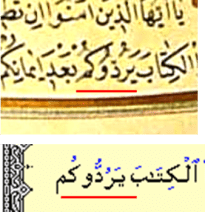 يَا اَيُّهَا الَّذِينَ اٰمَنُوا اِنْ تُط
الْكِتَابَ يَرُدُّوكُمْ بَعْدَ اِيمَانِكُمْ
ٱلْكِتَـٰبَ يَرُدُّوكُم